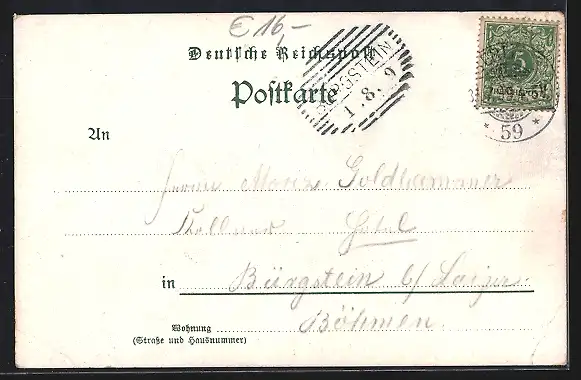 € 16,-
Deutsche Reichspost
Postkarte
BÜRGSTEIN
1.8.9
5
* 59 *
An
Herrn Moriz Goldhammer
Hotel
in Bürgstein b/ Haida
Böhmen.
Wohnung
(Straße und Hausnummer)